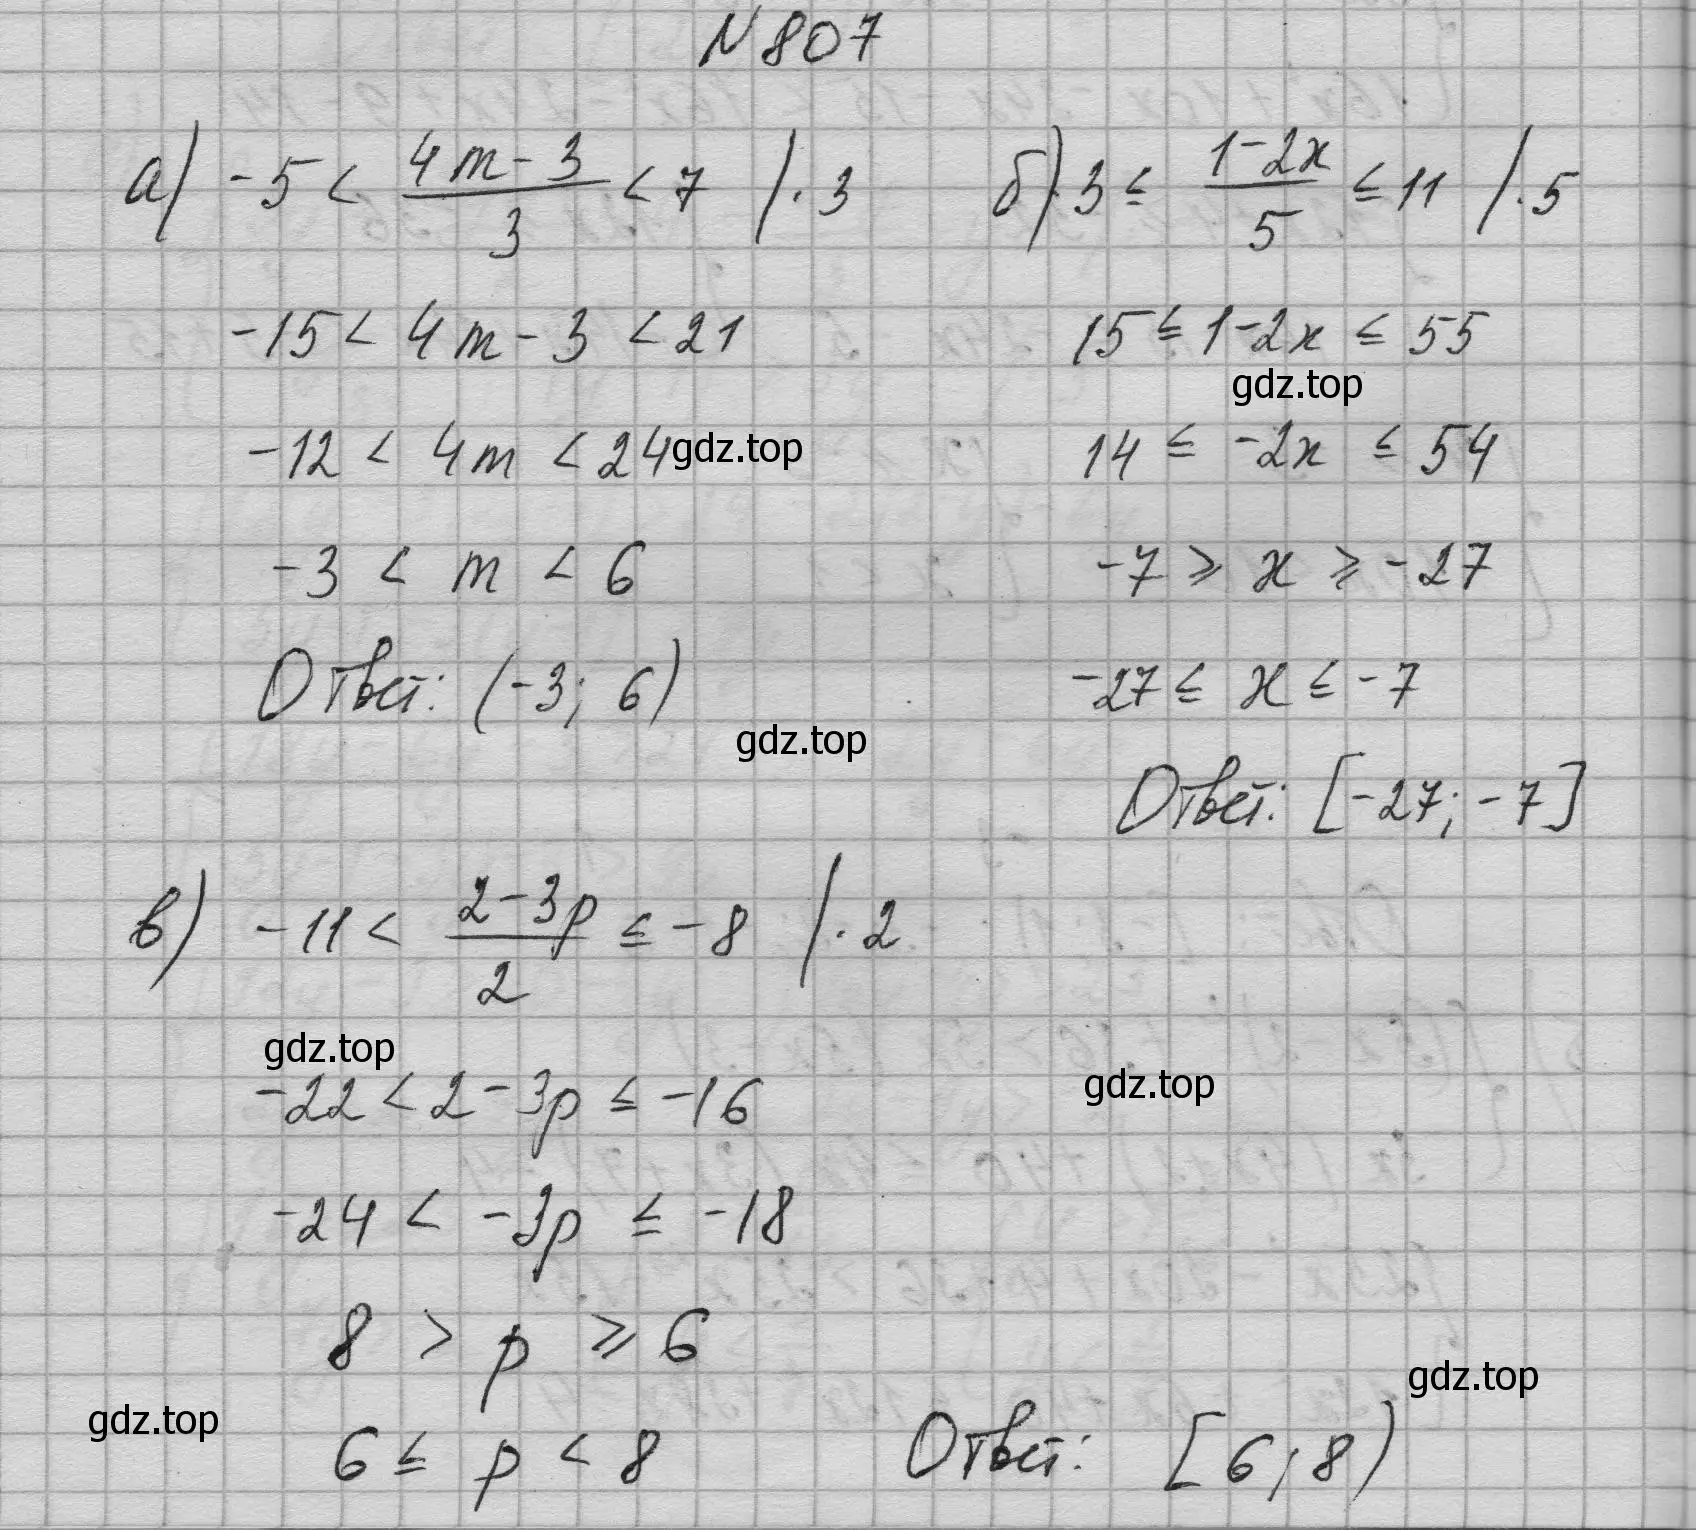 N 807
а) -5 < (4m - 3)/3 < 7 / · 3
-15 < 4m - 3 < 21
-12 < 4m < 24
gdz.top
-3 < m < 6
Ответ: (-3; 6)
gdz.top
б) 3 ≤ (1 - 2x)/5 ≤ 11 / · 5
15 ≤ 1 - 2x ≤ 55
gdz.top
14 ≤ -2x ≤ 54
-7 ⩾ x ⩾ -27
-27 ≤ x ≤ -7
Ответ: [-27; -7]
в) -11 < (2 - 3p)/2 ≤ -8 / · 2
gdz.top
-22 < 2 - 3p ≤ -16
gdz.top
-24 < -3p ≤ -18
8 > p ⩾ 6
gdz.top
gdz.top
6 ≤ p < 8
Ответ: [6; 8)